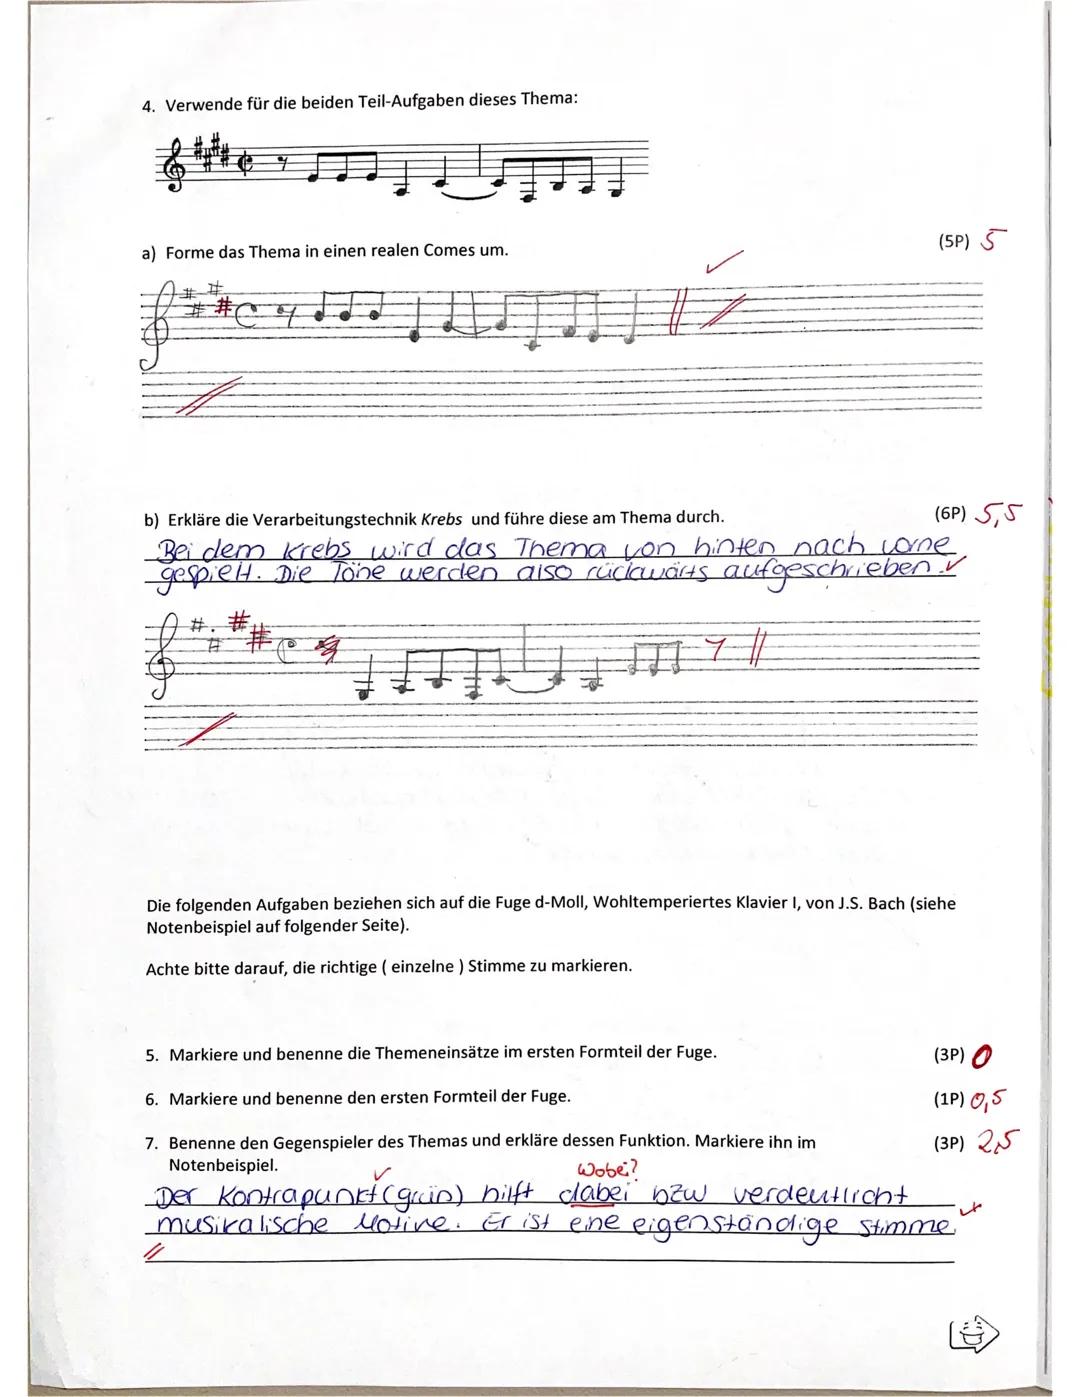 4. Verwende für die beiden Teil-Aufgaben dieses Thema:
a) Forme das Thema in einen realen Comes um.
(5P) 5
b) Erkläre die Verarbeitungstechnik Krebs und führe diese am Thema durch.
(6P) 5,5
Bei dem Krebs wird das Thema von hinten nach vorne
gespielt. Die Töne werden also rückwärts aufgeschrieben.
Die folgenden Aufgaben beziehen sich auf die Fuge d-Moll, Wohltemperiertes Klavier I, von J.S. Bach (siehe
Notenbeispiel auf folgender Seite).
Achte bitte darauf, die richtige ( einzelne ) Stimme zu markieren.
5. Markiere und benenne die Themeneinsätze im ersten Formteil der Fuge.
(3P) 0
6. Markiere und benenne den ersten Formteil der Fuge.
(1P) 0,5
7. Benenne den Gegenspieler des Themas und erkläre dessen Funktion. Markiere ihn im
(3P) 2,5
Notenbeispiel.
Wobei?
Der Kontrapunkt (grün) hilft dabei bzw verdeutlicht
musikalische Motive. Er ist eine eigenständige Stimme.